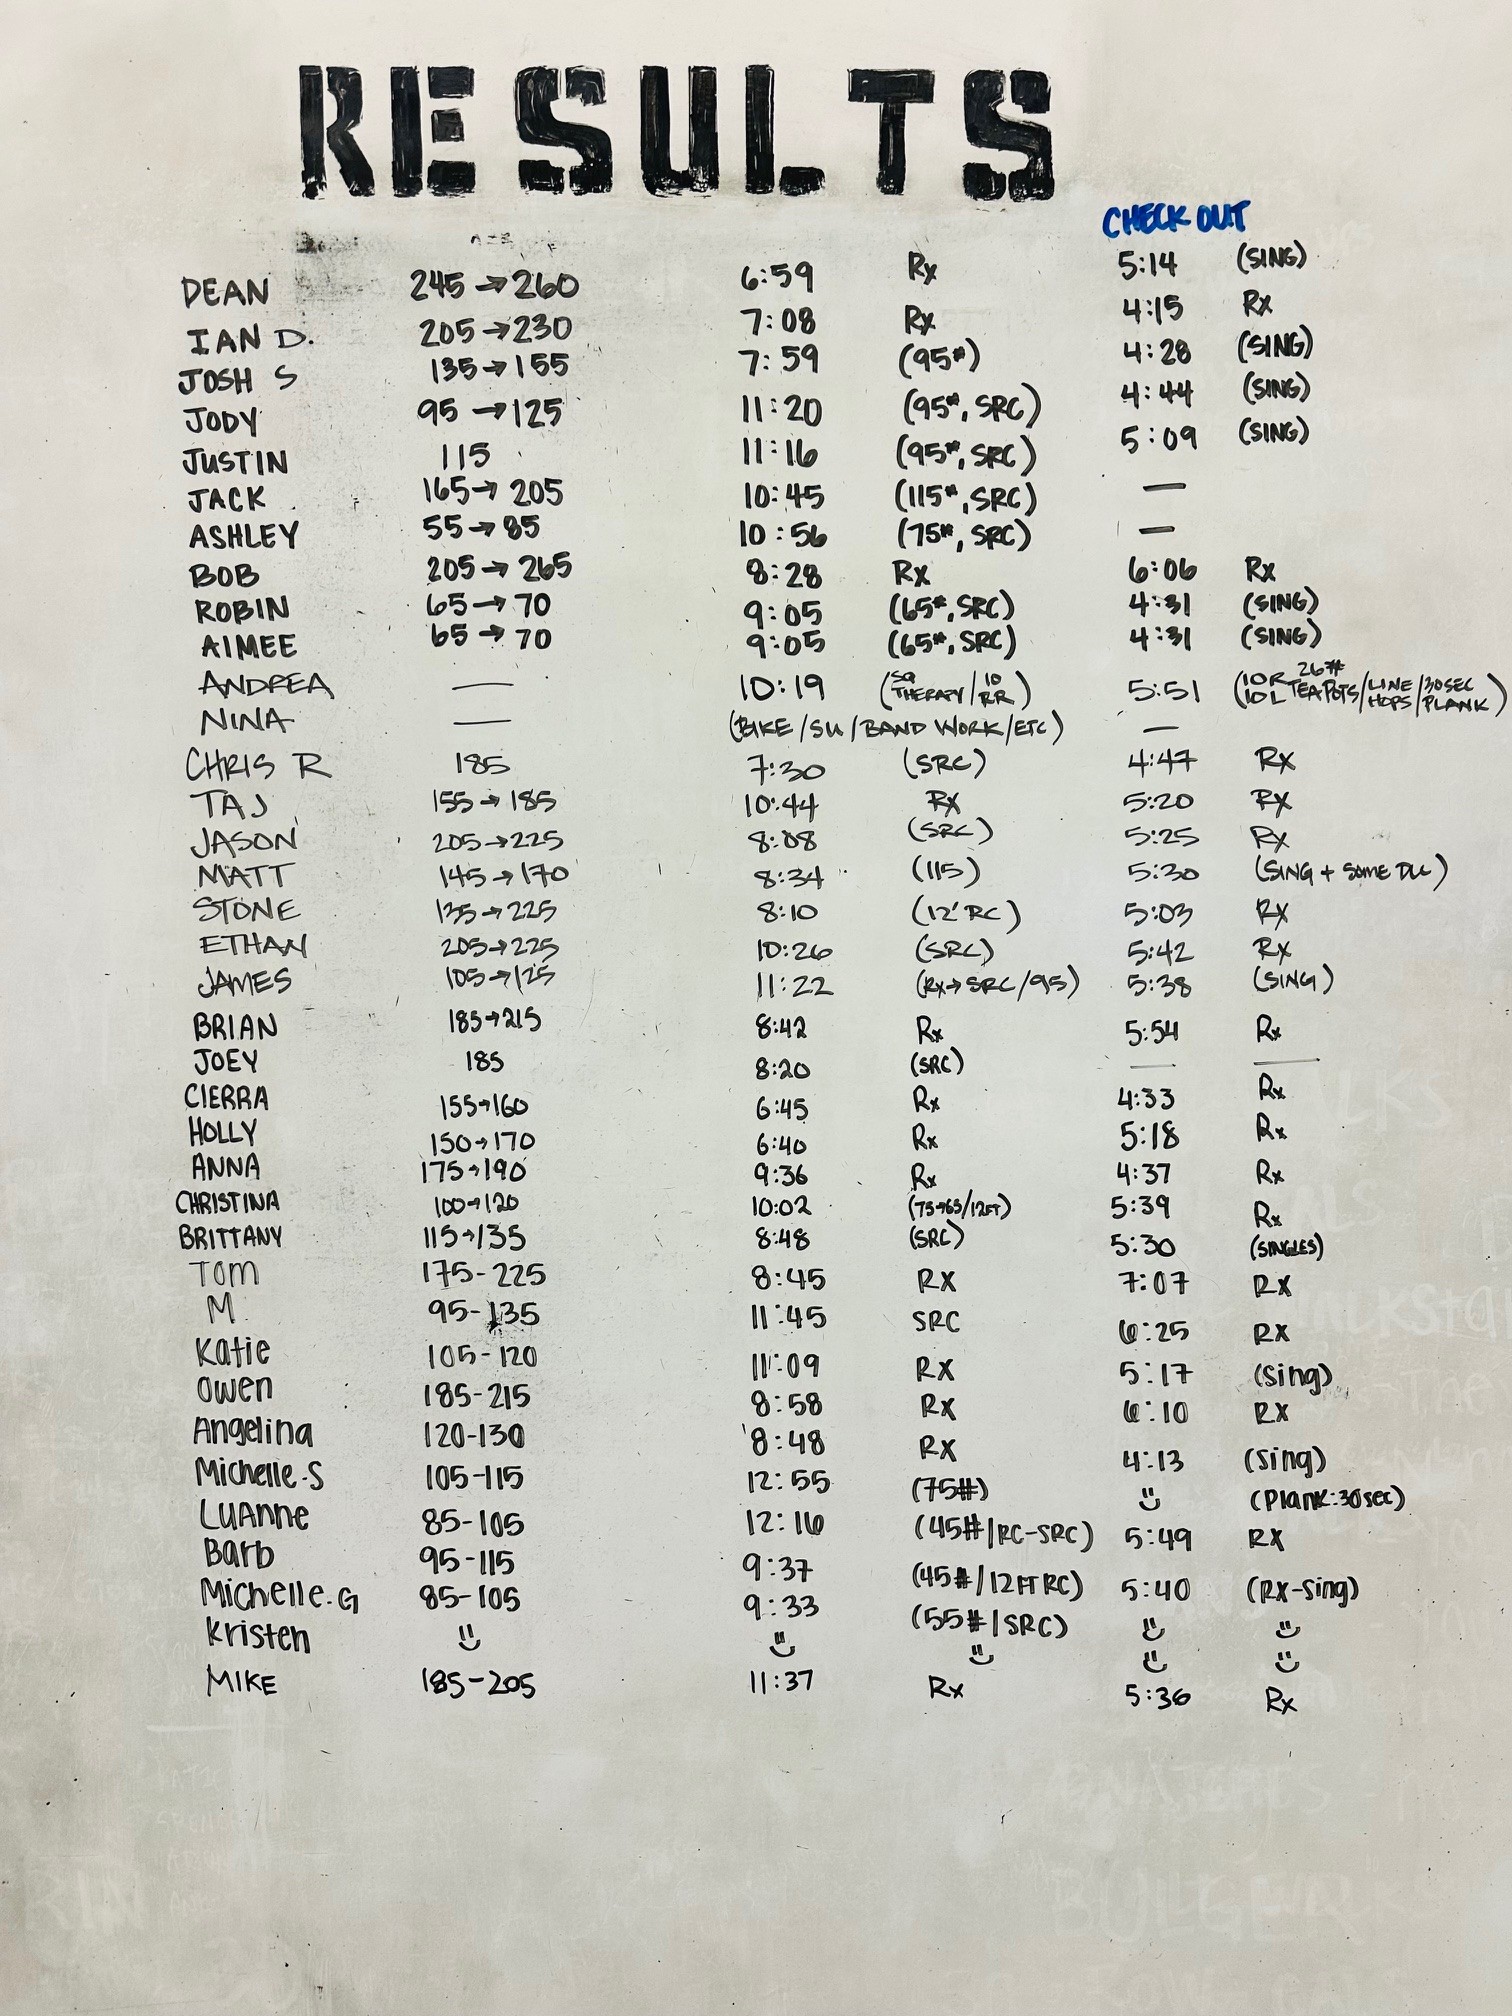 RESULTS
CHECK OUT
DEAN 245→260 6:59 Rx 5:14 (SING)
IAN D. 205→230 7:08 Rx 4:15 Rx
JOSH S 135→155 7:59 (95#) 4:28 (SING)
JODY 95→125 11:20 (95#, SRC) 4:44 (SING)
JUSTIN 115 11:16 (95#, SRC) 5:09 (SING)
JACK 165→205 10:45 (115#, SRC) —
ASHLEY 55→85 10:56 (75#, SRC) —
BOB 205→265 8:28 Rx 6:06 Rx
ROBIN 65→70 9:05 (65#, SRC) 4:31 (SING)
AIMEE 65→70 9:05 (65#, SRC) 4:31 (SING)
ANDREA — 10:19 (SQ THERAPY/10 RR) 5:51 (10R 10L 26# TEAPOTS/LINE HOPS/30SEC PLANK)
NINA — (BIKE/SU/BAND WORK/ETC) —
CHRIS R 185 7:30 (SRC) 4:47 Rx
TAJ 155→185 10:44 Rx 5:20 Rx
JASON 205→225 8:08 (SRC) 5:25 Rx
MATT 145→170 8:34 (115) 5:30 (SING + SOME DU)
STONE 135→225 8:10 (12' RC) 5:03 Rx
ETHAN 205→225 10:26 (SRC) 5:42 Rx
JAMES 105→125 11:22 (Rx→SRC/95) 5:38 (SING)
BRIAN 185→215 8:42 Rx 5:54 Rx
JOEY 185 8:20 (SRC) — —
CIERRA 155→160 6:45 Rx 4:33 Rx
HOLLY 150→170 6:40 Rx 5:18 Rx
ANNA 175→190 9:36 Rx 4:37 Rx
CHRISTINA 100→120 10:02 (75→65/12FT) 5:39 Rx
BRITTANY 115→135 8:48 (SRC) 5:30 (SINGLES)
Tom 175-225 8:45 RX 7:07 RX
M 95-135 11:45 SRC 6:25 RX
Katie 105-120 11:09 RX 5:17 (Sing)
Owen 185-215 8:58 RX 6:10 RX
Angelina 120-130 8:48 RX 4:13 (Sing)
Michelle.S 105-115 12:55 (75#) (Plank:30sec)
LuAnne 85-105 12:16 (45#/RC-SRC) 5:49 RX
Barb 95-115 9:37 (45#/12FT RC) 5:40 (RX-Sing)
Michelle.G 85-105 9:33 (55#/SRC)
Kristen
MIKE 185-205 11:37 Rx 5:36 Rx